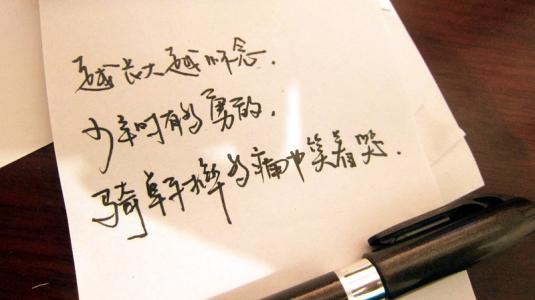 越长大越怀念.
少年时有多勇敢.
骑单车摔多痛也笑着哭.